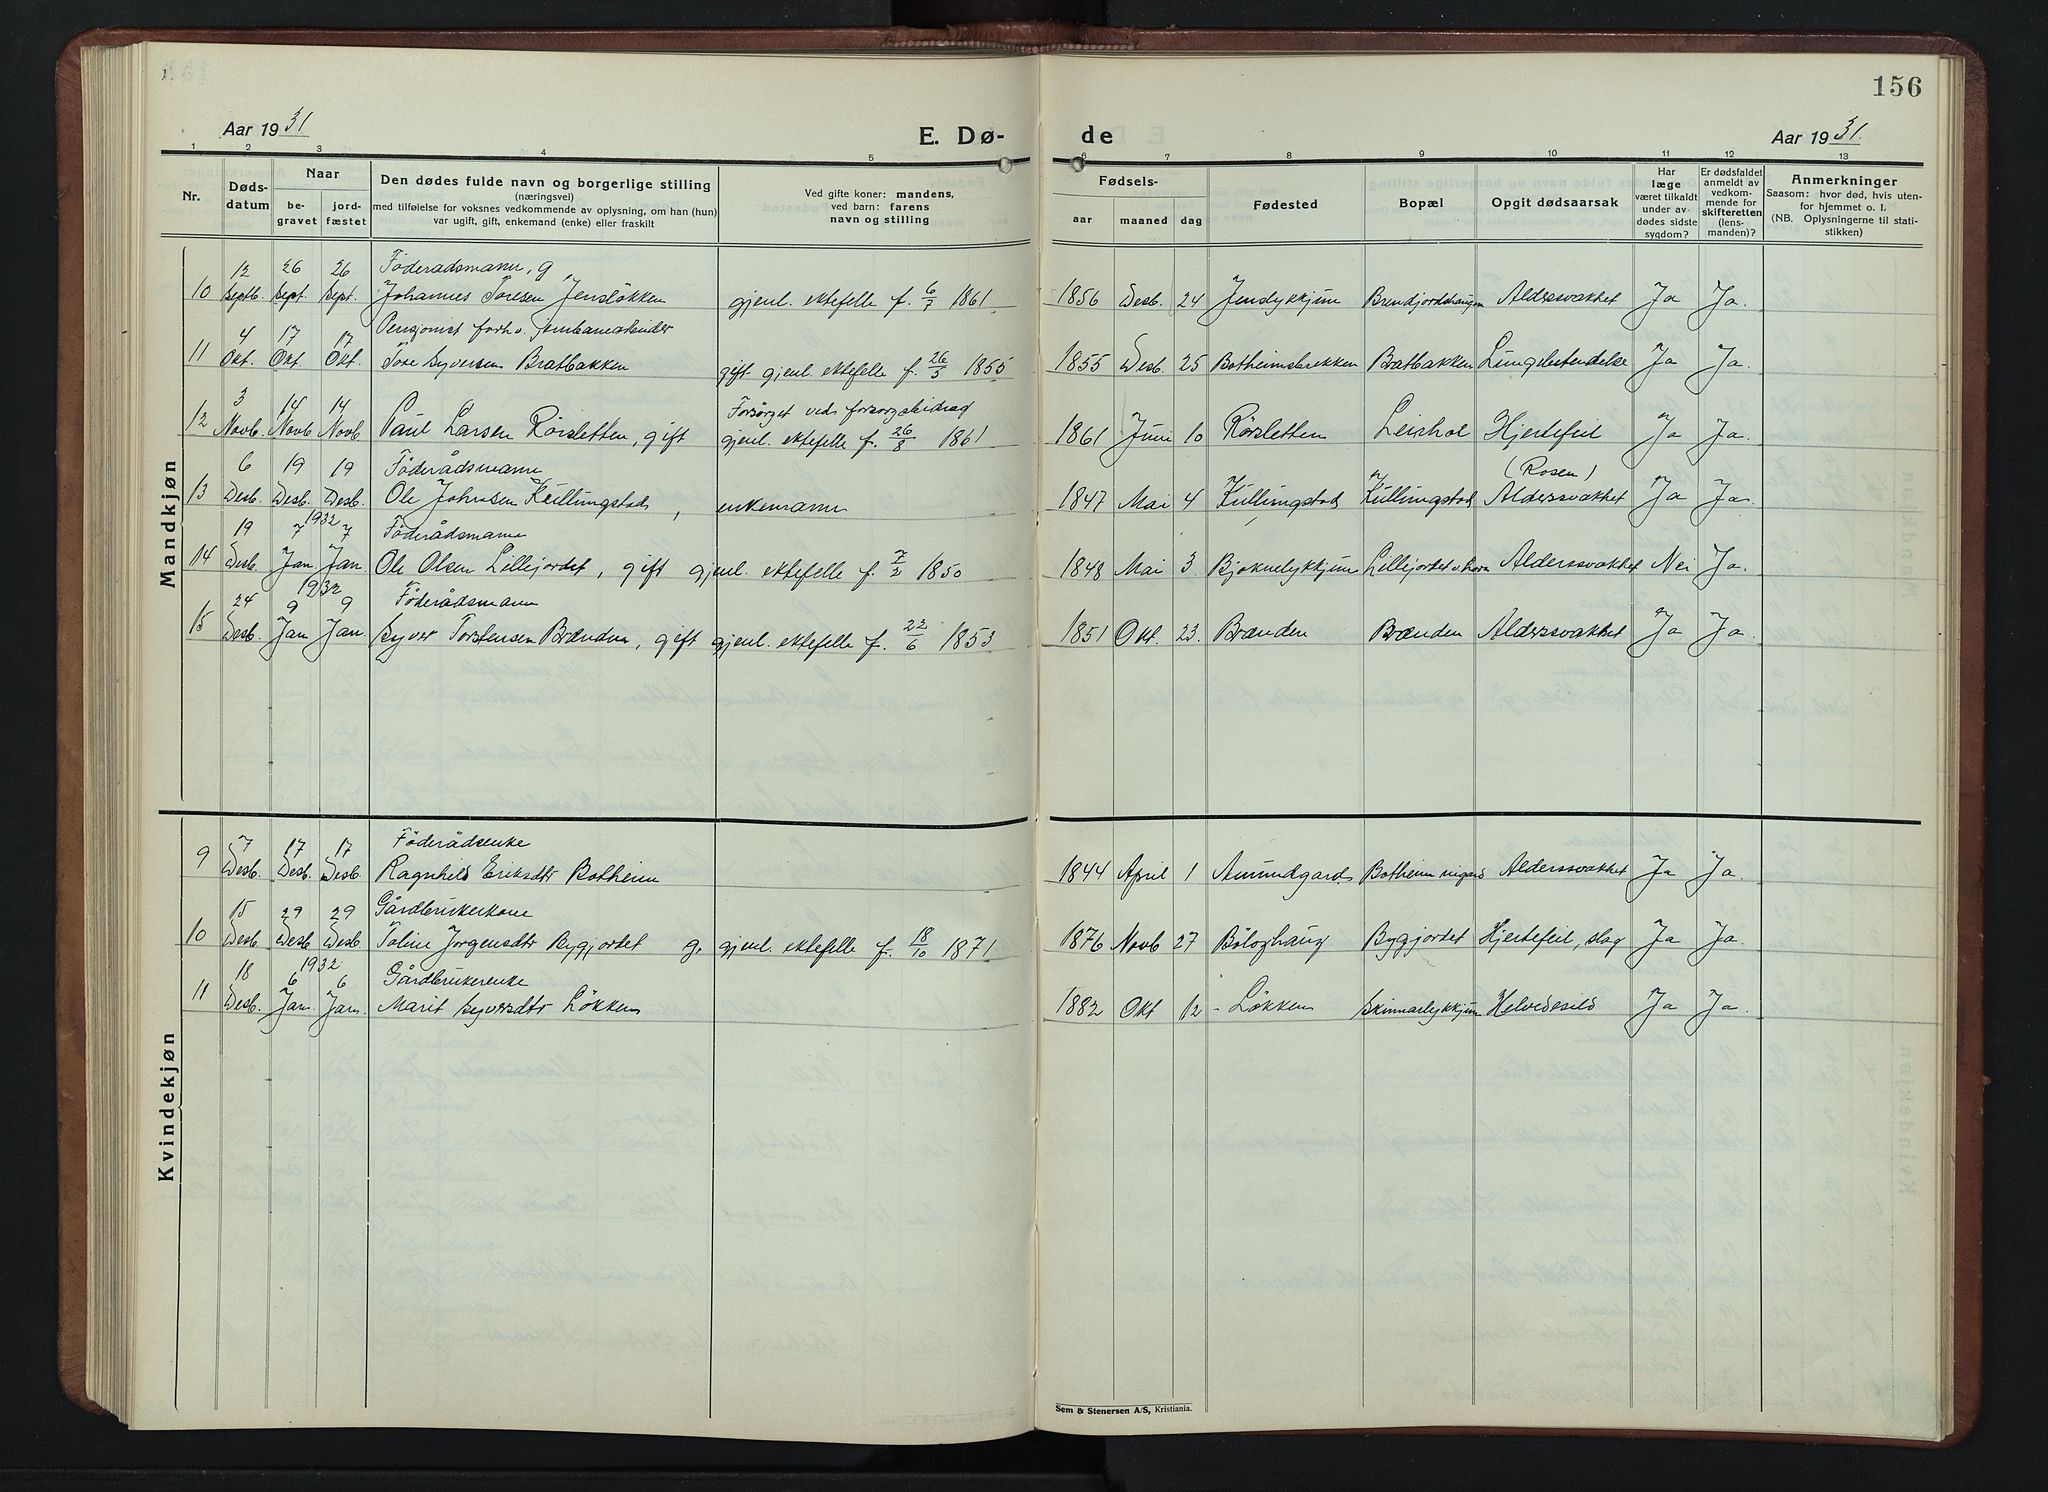 156
Aar 1931
E. Dø-
de
Aar 1931.
1 2 3 4 5 6 7 8 9 10 11 12 13
Nr.
Døds-
datum
Naar
be-
gravet
jord-
fæstet
Den dødes fulde navn og borgerlige stilling
(næringsvei)
med tilføielse for voksnes vedkommende av oplysning, om han (hun)
var ugift, gift, enkemand (enke) eller fraskilt
Ved gifte koner: mandens,
ved barn: farens
navn og stilling
Fødsels-
aar maaned dag
Fødested
Bopæl
Opgit dødsaarsak
Har
læge
været tilkaldt
under av-
dødes sidste
sygdom?
Er dødsfaldet
anmeldt av
vedkom-
mende for
skifteretten
(lens-
manden)?
Anmerkninger
Saasom: hvor død, hvis uten-
for hjemmet o. l.
(NB. Oplysningerne til stati-
stikken)
Mandkjøn
12 26 26 Föderadsmann, g
10 Septb. Sept. Sept. Johannes Toresen Jensløkken gjenl. ektefelle f. 6/7 1861 1856 Desb. 24 Jenslykkjun Alderssvakhet Ja Ja.
4 17 17 Pensjonist forhv. jernbanearbeider
11 Okt. Okt. Okt. Tore Syversen Bratbakken gift gjenl. ektefelle f. 26/5 1855 1855 Desb. 25 Botheimsbrekken Bratbakken Lungebetendelse Ja Ja.
3 14 14 Forsörget ved forsorgsbidrag
12 Novb. Novb Novb. Paul Larsen Rörsletten, gift gjenl. ektefelle f. 26/8 1861 1861 Juni 10 Rörsletten Hjertefeil Ja Ja.
6 19 19 Föderådsmann (Rosen)
13 Desb. Desb. Desb. Ole Johnsen Killingstad, enkemann 1847 Mai 4 Killingstad Killingstad Alderssvakhet Ja Ja.
19 1932 7 7 Föderådsmann
14 Desb. Jan Jan. Ole Olsen Lillejordet, gift gjenl. ektefelle f. 7/2 1850 1848 Mai 3. Lillejordet Alderssvakhet Nei Ja.
24 1932 9 9 Föderådsmann
15 Desb. Jan Jan. Syver Torstensen Brænden, gift gjenl. ektefelle f. 22/6 1853 1851 Okt. 23. Brænden Brænden Alderssvakhet Ja Ja.
Kvindekjøn
7 17 17 Föderådsenke
9 Desb. Desb. Desb. Ragnhild Eriksdtr Botheim 1844 April 1 Amundgard Botheim Alderssvakhet Ja Ja.
15 29 29 Gårdbrukerkone
10 Desb. Desb Desb. Toline Jorgensdtr Bygjordet g. gjenl. ektefelle f. 18/10 1871 1876 Novb 27 Böloghaug Bygjordet Hjertefeil, slag Ja Ja.
18 1932 6 6 Gårdbrukerenke
11 Desb. Jan. Jan. Marit Syversdtr Lökken 1882 Okt 12 - Lökken Skinnarlykkjun Helvedesild Ja Ja.
Sem & Stenersen A/S, Kristiania.